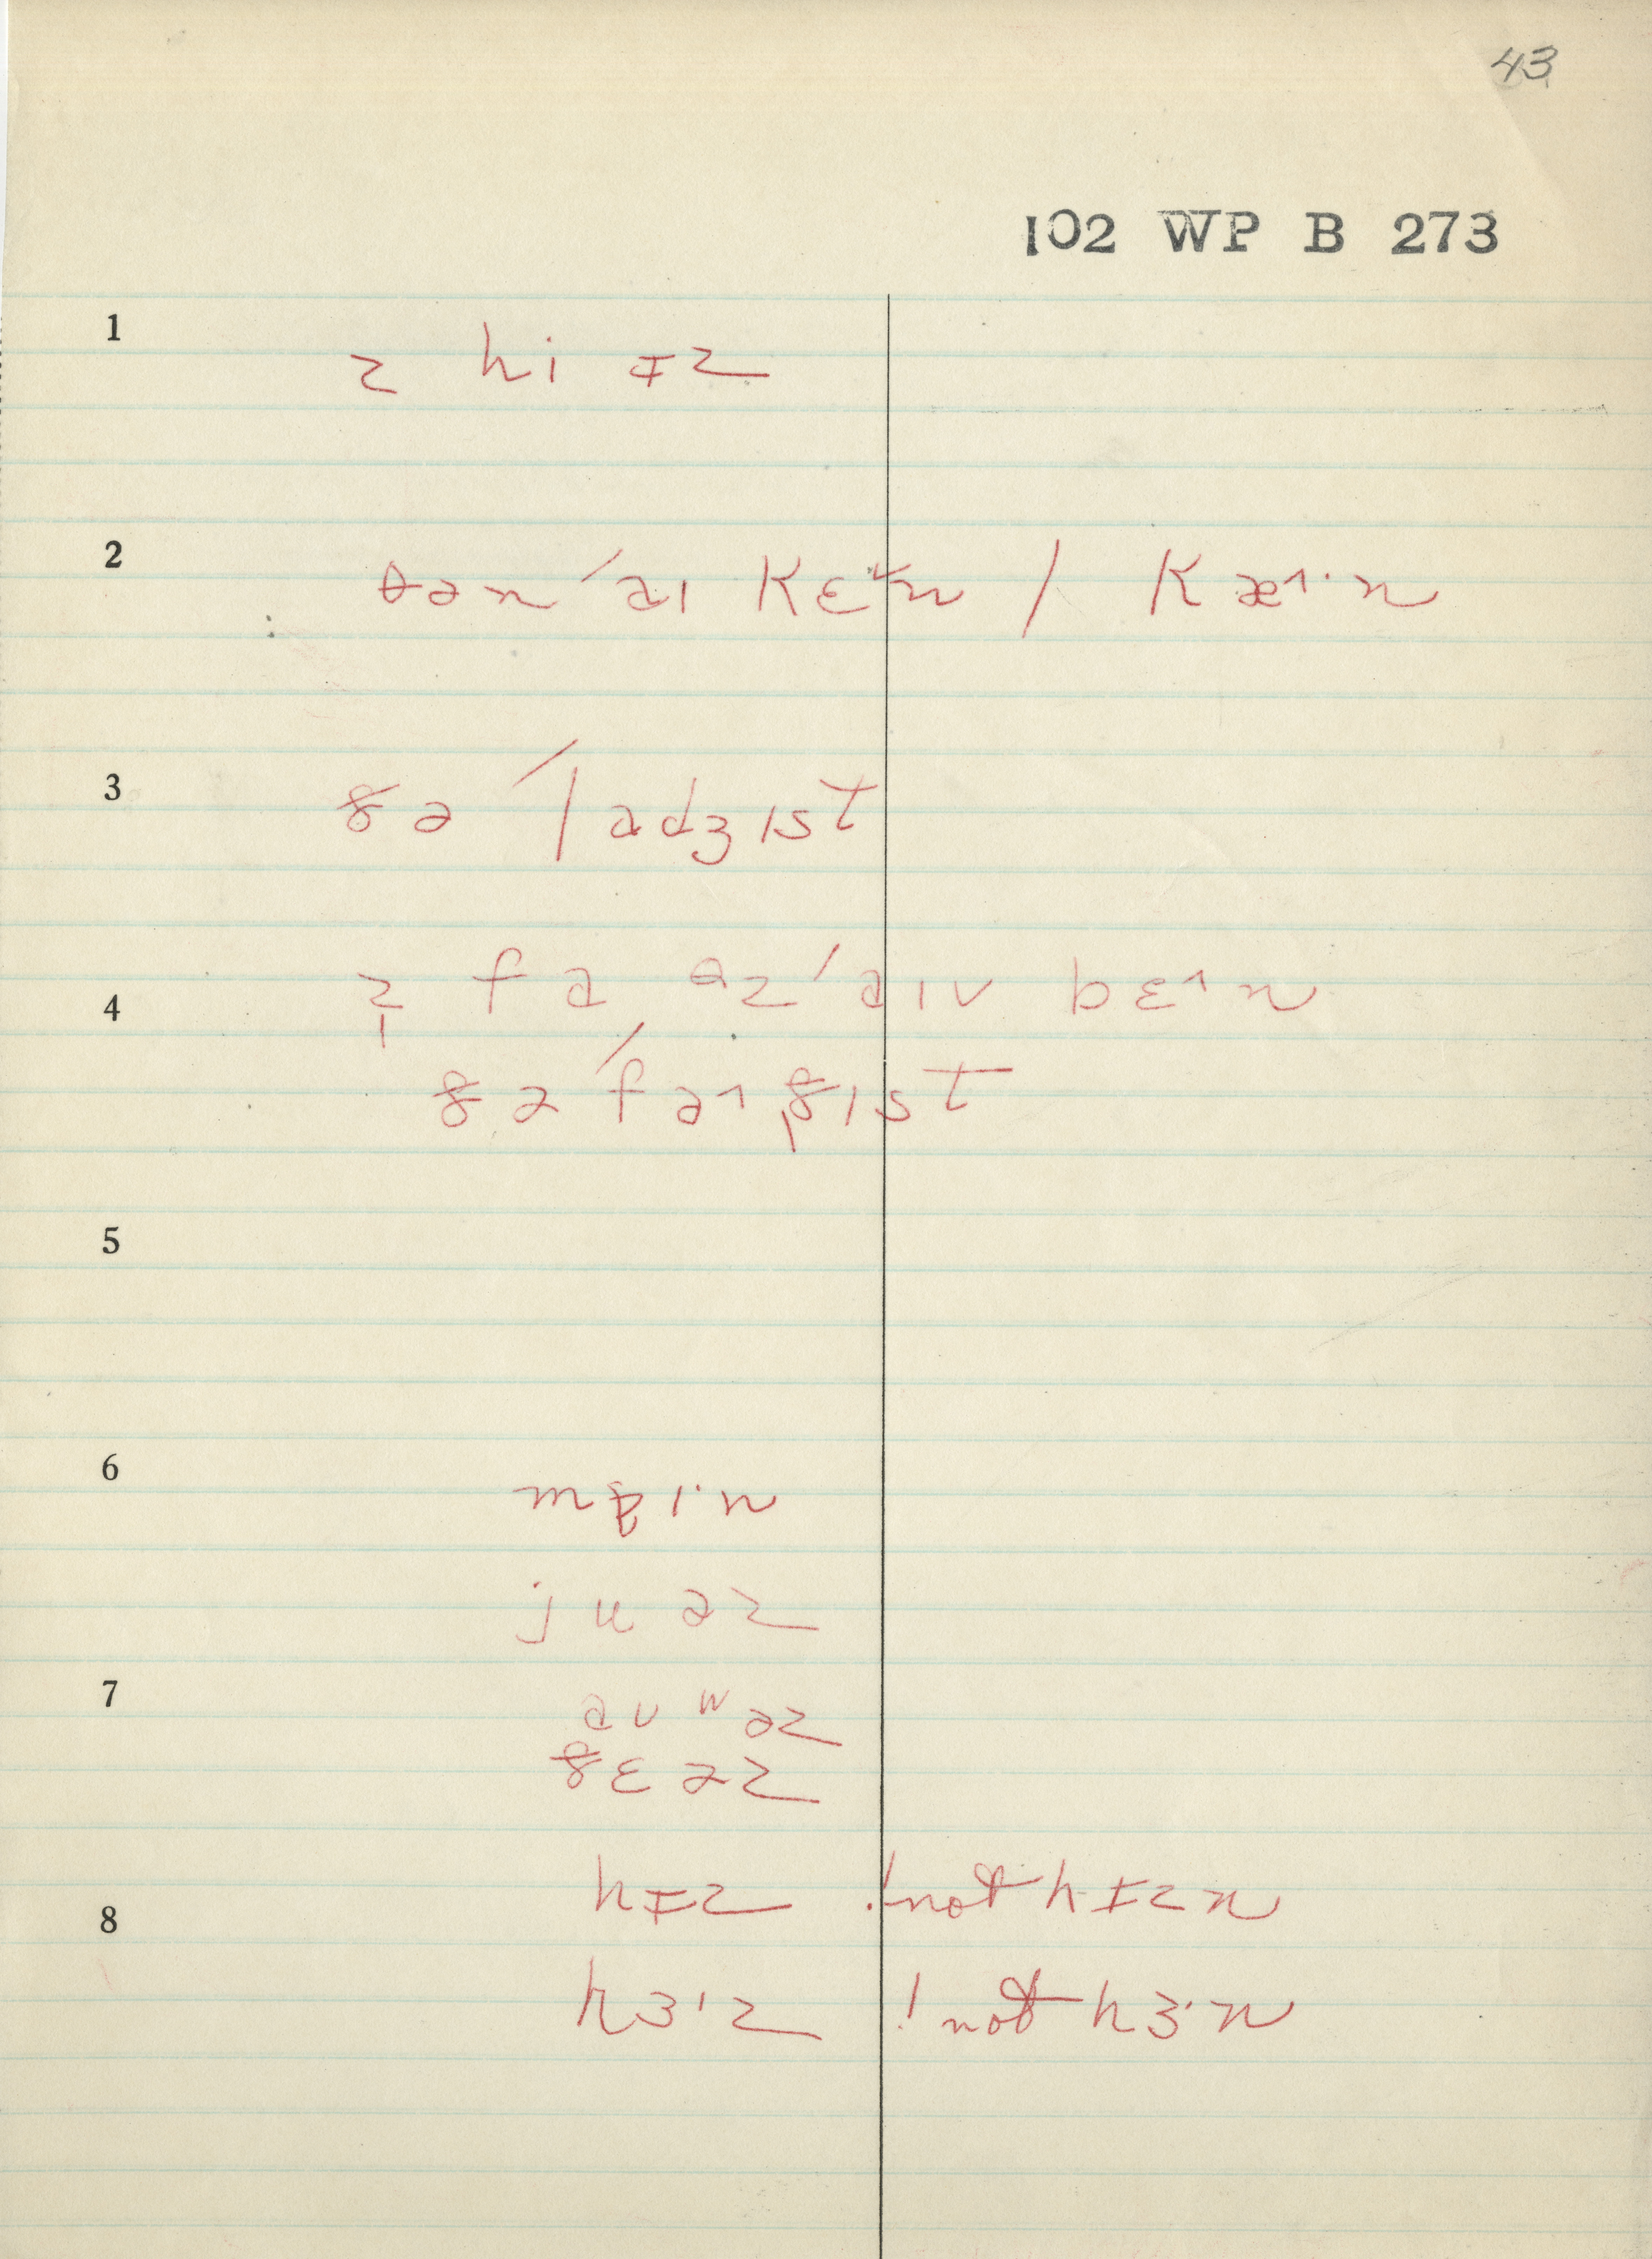 43
102 WP B 273
1
z hi ɪz
2
θən ˈaɪ kɛ^n / kæ^·n
3
ðə ˈladʒɪst
4
z̩ fɑ əz ˈaɪv bɛ^n
ðə ˈfɑ^ðɪst
5
6
j u əz
7
ɑ ʊ ʷ əz
ðɛ əz
8
hɪz ! not hɪzn
hɜ·z ! not hɜ·n